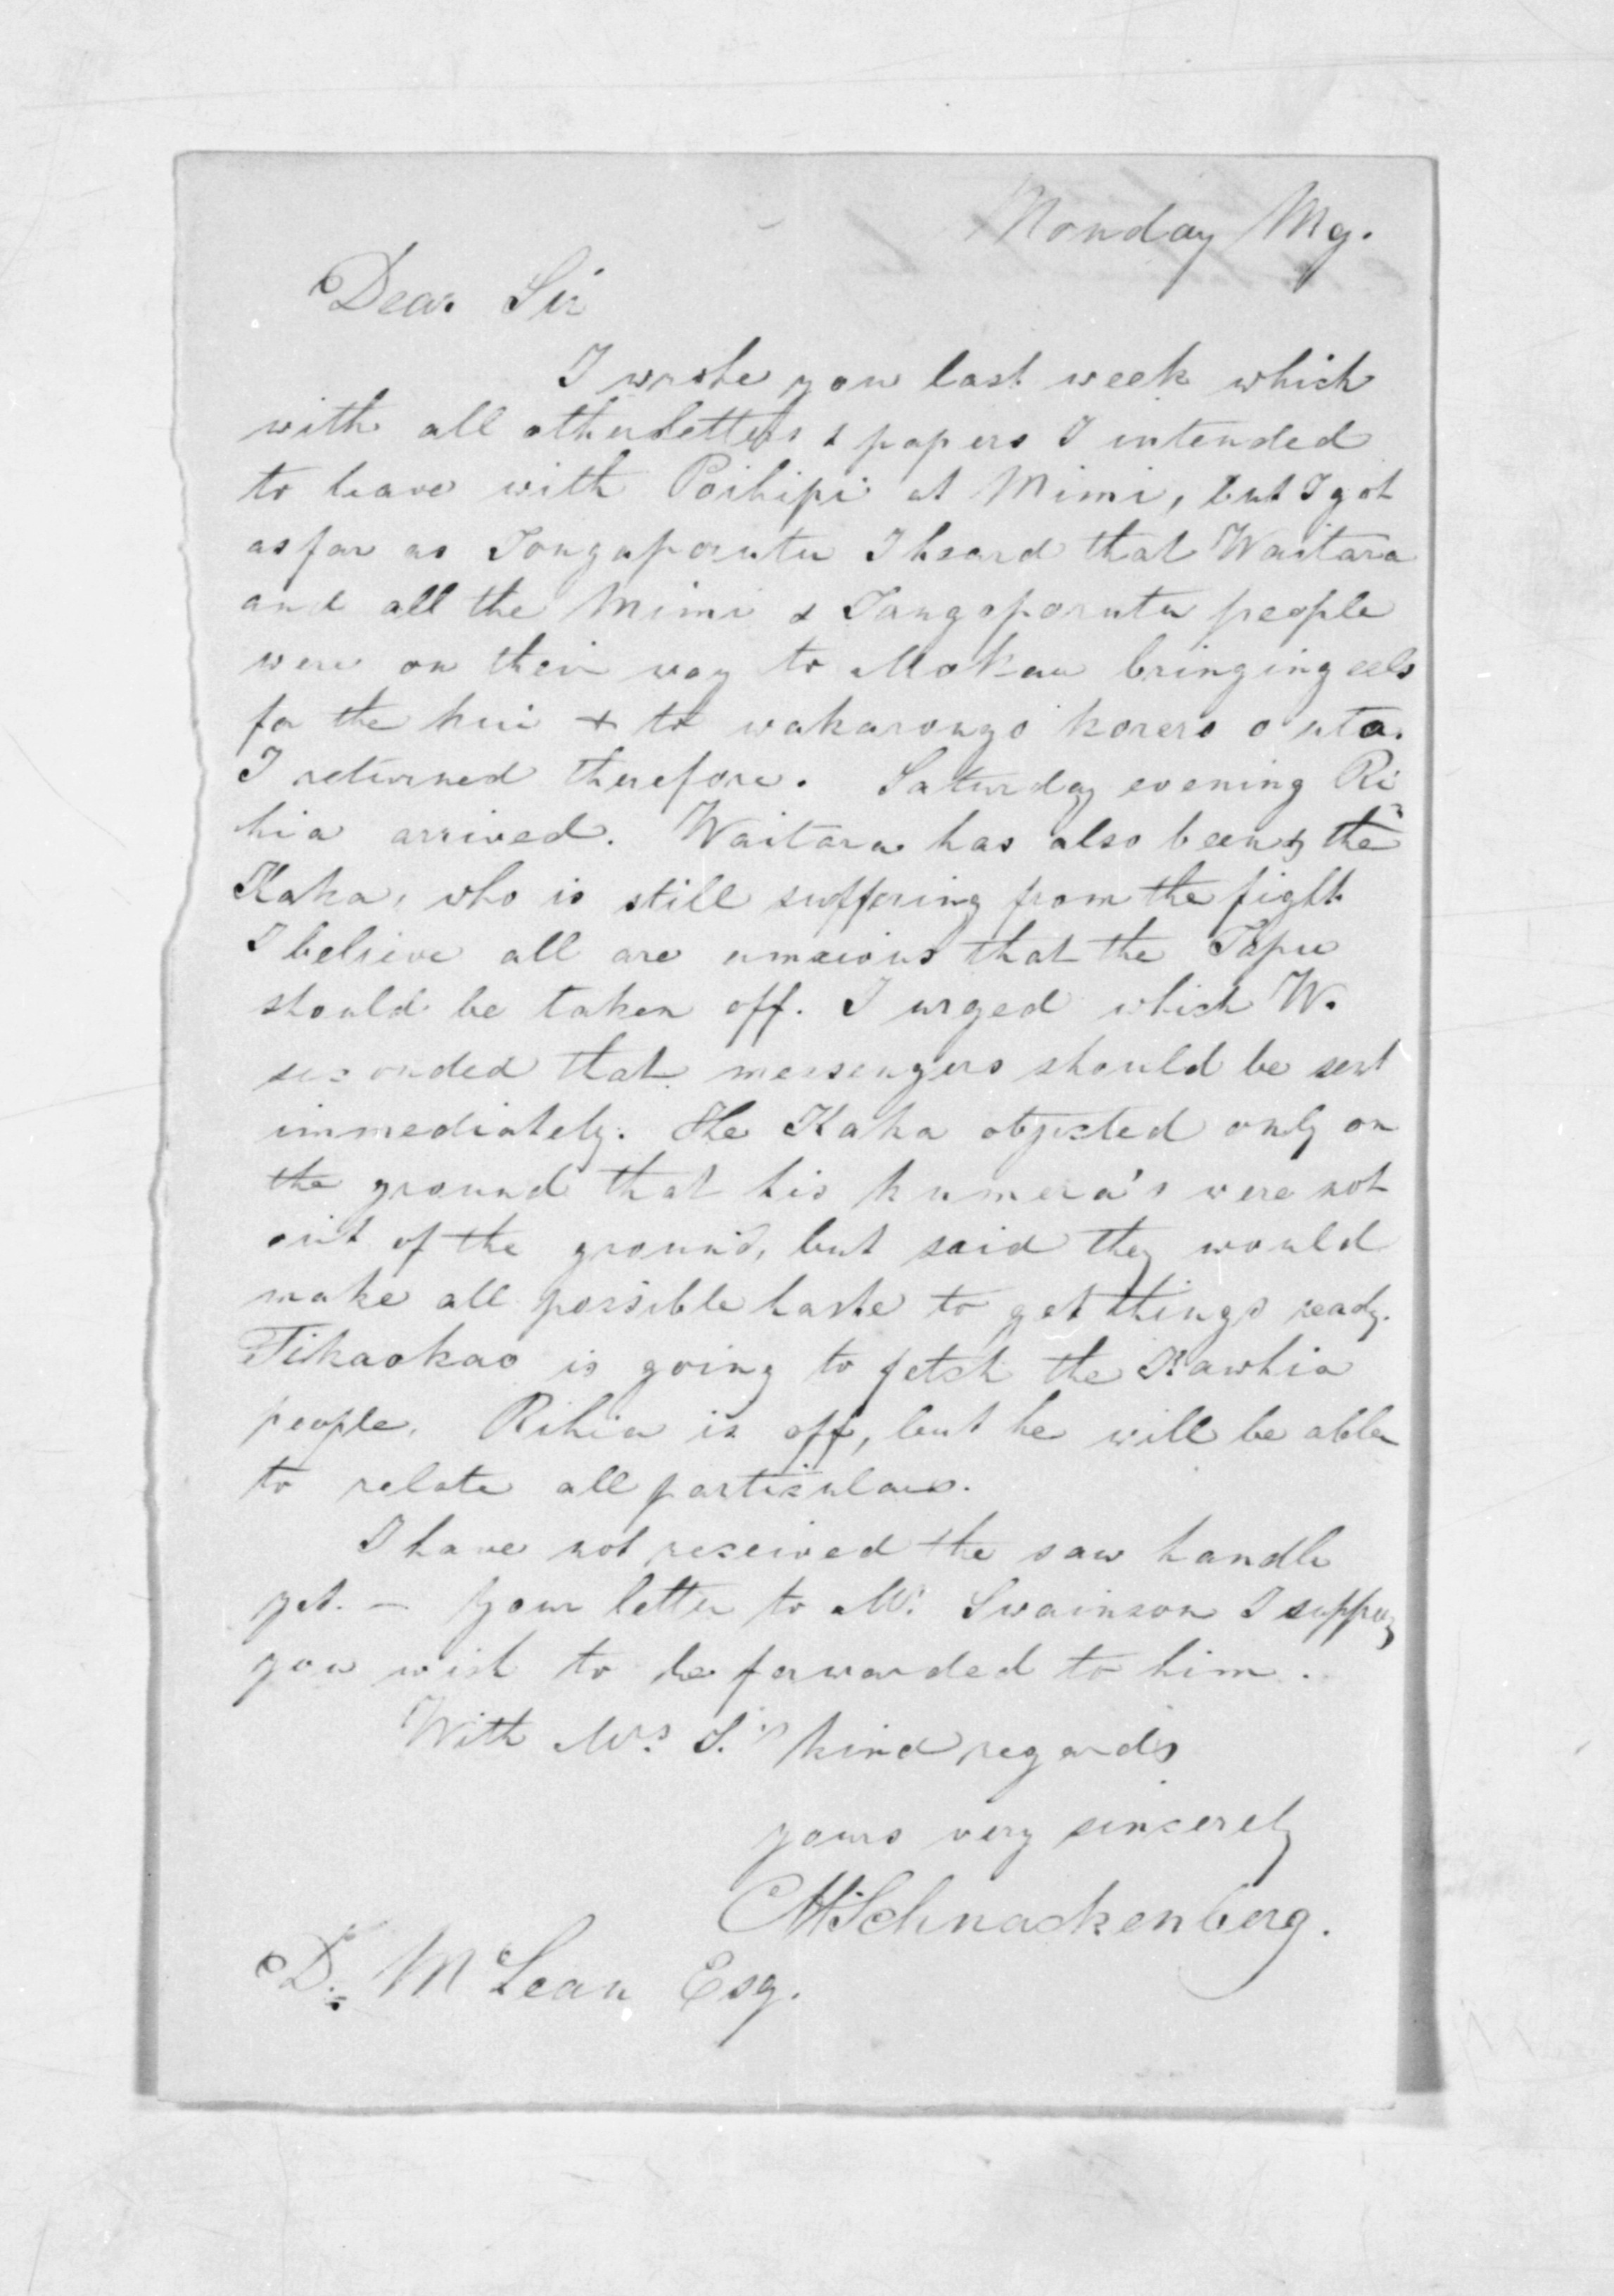 Monday Mg.
Dear Sir
I wrote you last week which
with all other letters & papers I intended
to leave with Poihipi at Mimi, but I got
as far as Tongaporutu I heard that Waitara
and all the Mimi & Tangoporutu people
were on their way to Mokau bringing eels
for the hui & to wakarongo korero o uta.
I returned therefore. Saturday evening Ri
hia arrived. Waitara has also been & the
Kaka, who is still suffering from the fight
I believe all are anxious that the Tapu
should be taken off. I urged which W.
seconded that messengers should be sent
immediately. The Kaka objected only on
the ground that his kumera's were not
out of the ground, but said they would
make all possible haste to get things ready.
Tikaokao is going to fetch the Kawhia
people. Rihia is off, but he will be able
to relate all particulars.
I have not received the saw handle
yet. — Your letter to Mr. Swainson I suppose
you wish to be forwarded to him.
With Mrs. S.'s kind regards
yours very sincerely
CHSchnackenberg.
D. McLean Esq.